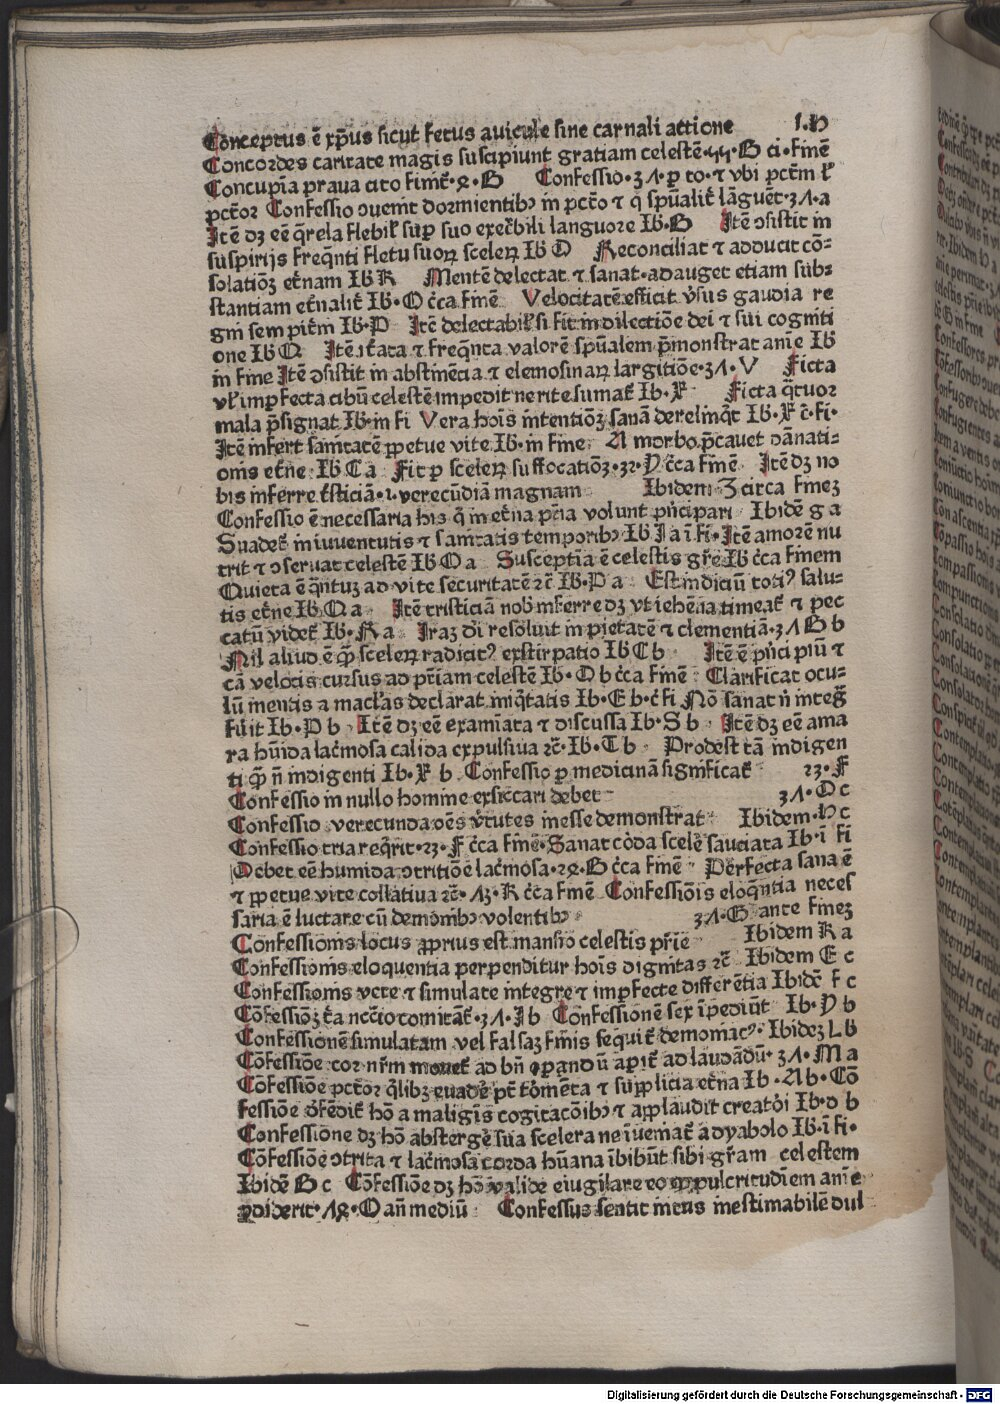 Conceptus ē xp̄us sicut fetus auicule sine carnali attione 1.D
Concordes caritate magis suscipiunt gratiam celestē·44·B ci·finē
Concupīa praua cito finit̄·2·B Confessio·31·p to·⁊ vbi pctm̄ ł
pctōꝛ Confessio ↄuenit dormientibꝫ in pctō ⁊ q̄ spūalit̄ lāguēt·31·a
Itē dꝫ eē q̄rela flebił sup̄ suo execᵃbili languore Ib·B Itē ↄsistit in
suspirijs freq̄nti fletu suoꝝ sceleꝝ Ib D Reconciliat ⁊ adducit cō-
solatioꝫ et̄nam Ib K Mentē delectat ⁊ sanat·adauget etiam sub-
stantiam et̄nalit̄ Ib·O c̄ca finē Velocitatē efficit v̄sus gaudia re
gni sempit̄m Ib·P Itē delectabił si fit in dilectiōe dei ⁊ sui cogniti
one Ib Q Itē it̄ata ⁊ freq̄nta valorē spūalem p̄monstrat anīe Ib
in fine Itē ↄsistit in abstinētia ⁊ elemosinaꝝ largitiōe·31·V Ficta
vł imp̄fecta cibū celestē impedit ne rite sumat̄ Ib·X Ficta q̄tuor
mala p̄signat Ib·in fi Vera hoīs intentioꝫ sanā derelinq̄t Ib·X c̄·fi·
Itē infert sanitatē ppetue vite Ib·in fine· A morbo p̄cauet dānati-
onis et̄ne·Ib·C a Fit p sceleꝝ suffocatioꝫ·32·Y c̄ca finē Itē dꝫ no
bis inferre t̄sticiā·i·verecūdiā magnam Ibidem Z circa finez
Confessio ē necessaria his q̄ in et̄na pr̄ia volunt p̄ncipari Ibidē g a
Suadet̄ in iuuentutis ⁊ sanitatis temporibꝫ Ib I a ī·fi·Itē amorē nu
trit ⁊ ↄseruat celestē Ib O a Susceptīa ē celestis gr̄e Ib c̄ca finem
Quieta ē q̄ntuꝫ ad vite securitatē ꝛc̄ Ib·P a Est indiciū toti⁹ salu-
tis et̄ne Ib·Q a Itē tristiciā nob̄ inferre dꝫ vt iehēna timeat̄ ⁊ pec
catū videt̄ Ib·R a Iraꝫ di̅ resoluit in pietatē ⁊ clementiā·31 B b
Nil aliud ē q̄ꝫ sceleꝝ radicit⁹ exstirpatio Ib C b Itē ē p̄ncipiū ⁊
cā velocis cursus ad pr̄iam celestē Ib·D b c̄ca finē Clarificat ocu-
lū mentis a macłas declarat iniq̄tatis Ib·E b·c̄ fi Nō sanat n̄ integr̄
fūit Ib·P b Itē dꝫ eē examīata ⁊ discussa Ib·S b Itē dꝫ eē ama
ra hūida lacͥmosa calida expulsiua ꝛc̄·Ib·T b Prodest tā indigen
ti q̄ꝫ n̄ indigenti Ib·X b Confessio p medicinā significat̄ 23·F
Confessio in nullo homine exsiccari debet 31·D c
Confessio verecunda oēs v̄tutes inesse demonstrat Ibidem·H c
Confessio tria req̄rit·23·F c̄ca finē·Sanat coꝛda scelē sauciata Ib·ī fi
Debet eē humida ↄtritiōe lacͥmosa·28·B c̄ca finē Perfecta sana ē
⁊ ppetue vite collatiua ꝛc̄·13·K c̄ca finē Confessiōis eloq̄ntia neces
saria ē luctare cū demonibꝫ volentibꝫ 31·G ante finez
Confessionis locus pprius est mansio celestis pr̄ie Ibidem K a
Confessionis eloquentia perpenditur hoīs dignitas ꝛc̄ Ibidem E c
Confessionis vere ⁊ simulate integre ⁊ impfecte differētia Ibidē F c
Cōfessioꝫ t̄a nc̄cio comitāt̄·31·I b Confessionē sex īpediūt Ib·Y b
Confessionē simulatam vel falsaꝫ finis sequit̄ demoniac⁹·Ibideꝫ L b
Cōfessiōe cor nr̄m mouet̄ ad bn̄ opandū apit̄ ad laudādū·31·M a
Cōfessiōe pctōꝛ q̄libꝫ euadē pt̄ toꝛmēta ⁊ supplicia et̄na Ib·A b·Cō
fessiōe d̄fēdit̄ hō a malignis cogitacōibꝫ ⁊ applaudit creatōi Ib·o b
Confessione dꝫ hō abstergē sua scelera ne īueniat̄ a dyabolo Ib·ī fi·
Cōfessiōe ↄtrita ⁊ lacͥmosa corda hūana ībibūt sibi gr̄am celestem
Ibidē B c Cōfessiōe dꝫ hō valide eiugilare eo q̄ pulcritudiem anīe
pdiderit·18·O an̄ mediū Confessus sentit intus inestimabilē dul
Digitalisierung gefördert durch die Deutsche Forschungsgemeinschaft · DFG